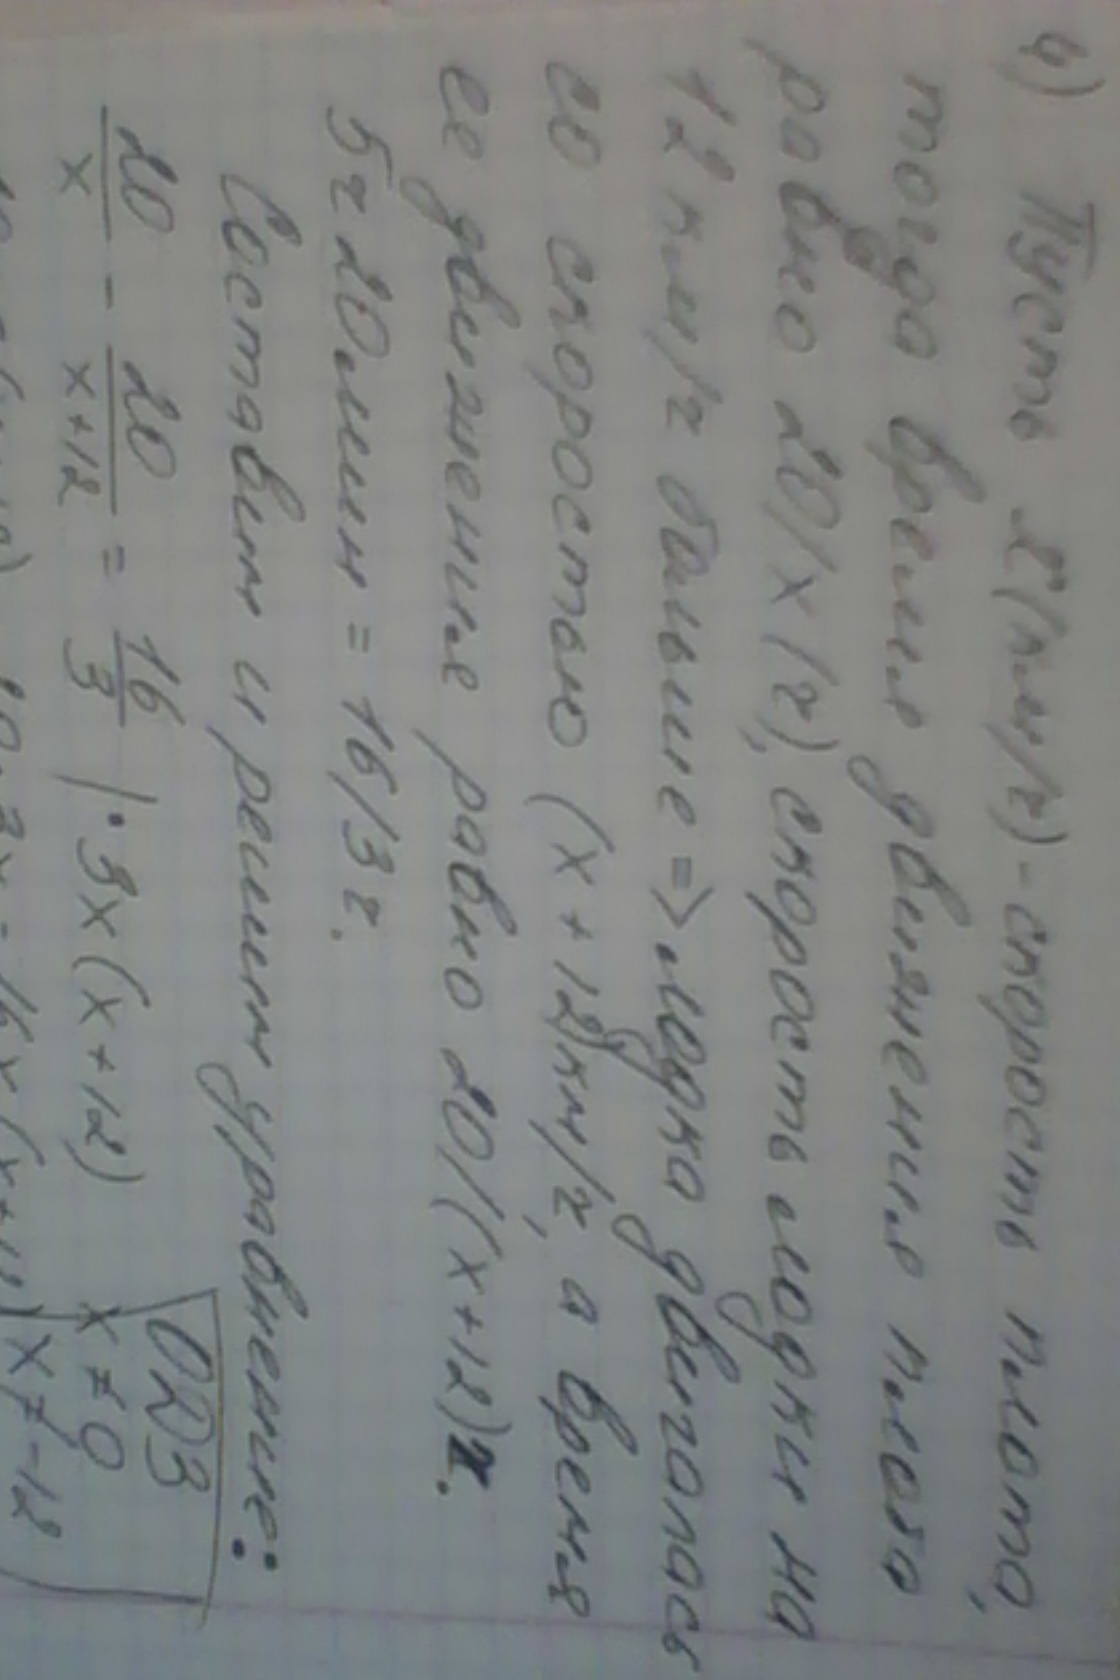 4) Пусть x (км/ч) - скорость плота,
тогда время движения плота
равно 20/x (ч), скорость лодки на
12 км/ч больше => лодка двигалась
со скоростью (x + 12) км/ч, а время
ее движения равно 20/(x+12) ч.
5ч 20мин = 16/3 ч.
Составим и решим уравнение:
20/x - 20/(x+12) = 16/3 | · 3x(x+12)
ОДЗ
x ≠ 0
x ≠ -12